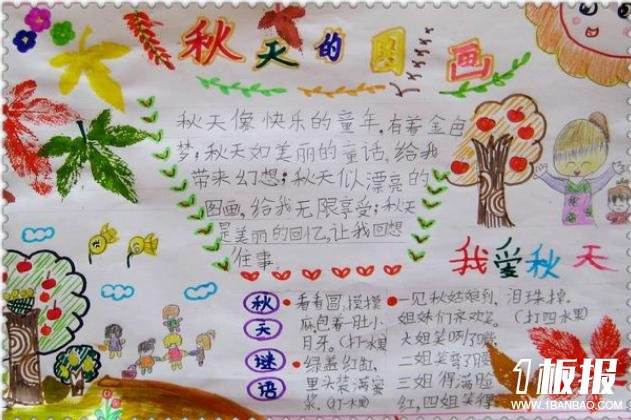 秋天的图画
秋天像快乐的童年,有着金色
梦;秋天如美丽的童话,给我
带来幻想;秋天似漂亮的
图画,给我无限享受;秋天
是美丽的回忆,让我回想
往事。
我爱秋天
秋天谜语
看看圆,摸摸
麻,包着一肚小
月牙。(打一水果
绿盖红缸,
里头装满蜜
浆。(打一水果)
一见秋姑娘到,泪珠掉。
姐妹们齐欢笑。(打四水果)
大姐笑咧了嘴
二姐笑弯了腰
三姐得满脸
红,四姐笑得
1板报
WWW.1BANBAO.COM